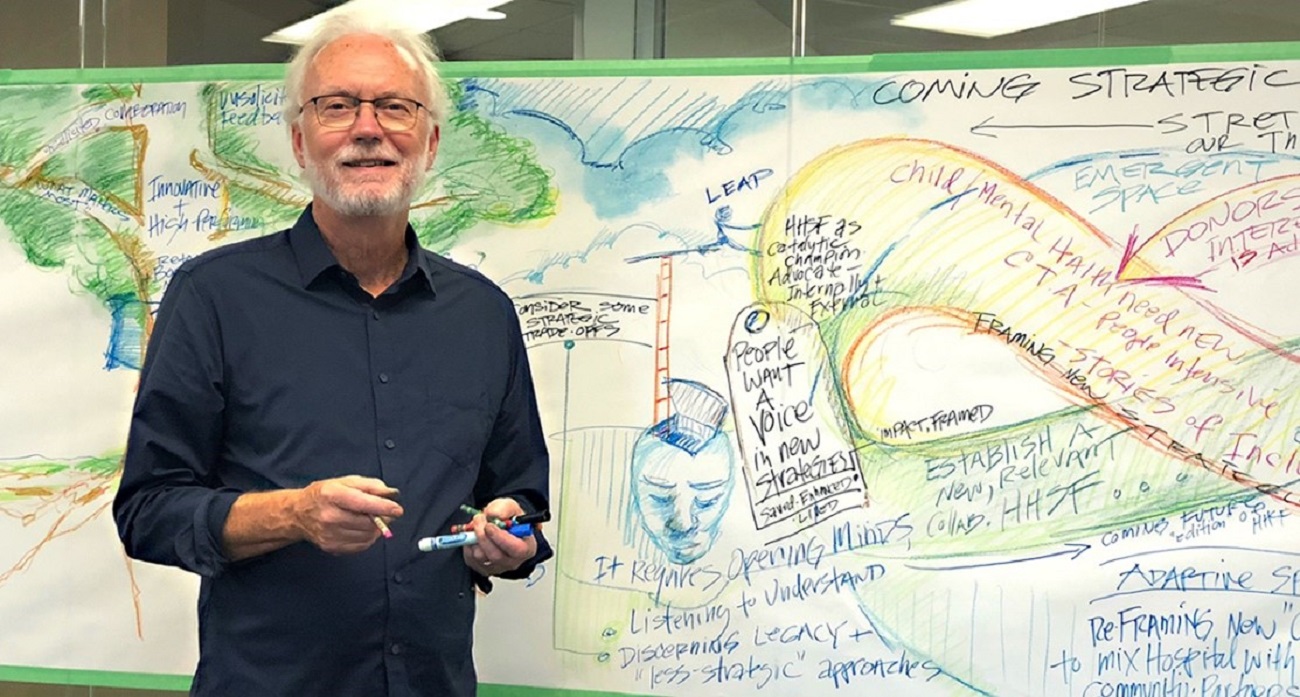 Unsolicit
Feedba
Innovative
+
High-Perform
CONSIDER SOME
STRATEGIC
TRADE-OFFS
LEAP
HHSF as
catalytic
champion
Advocate -
Internally +
External
People
WANT
A
Voice
in new
strategies!
It Requires Opening Minds,
Listening to Understand
Discerning Legacy +
"less-strategic" approaches
COMING STRATEGIC
STRET
OUR TH
EMERGENT
SPACE
DONORS
INTERE
IS Ad
Child/Mental Health need new
CTA - People intensive
- STORIES of Incl
FRAMING NEW STRATEG
IMPACT, FRAMED
ESTABLISH A
New, Relevant
Collab. HHSF
COMING, FUTURE
"edition" of
ADAPTIVE SP
Re-FRAMING NOW "C
to mix Hospital with
communiti. Partners